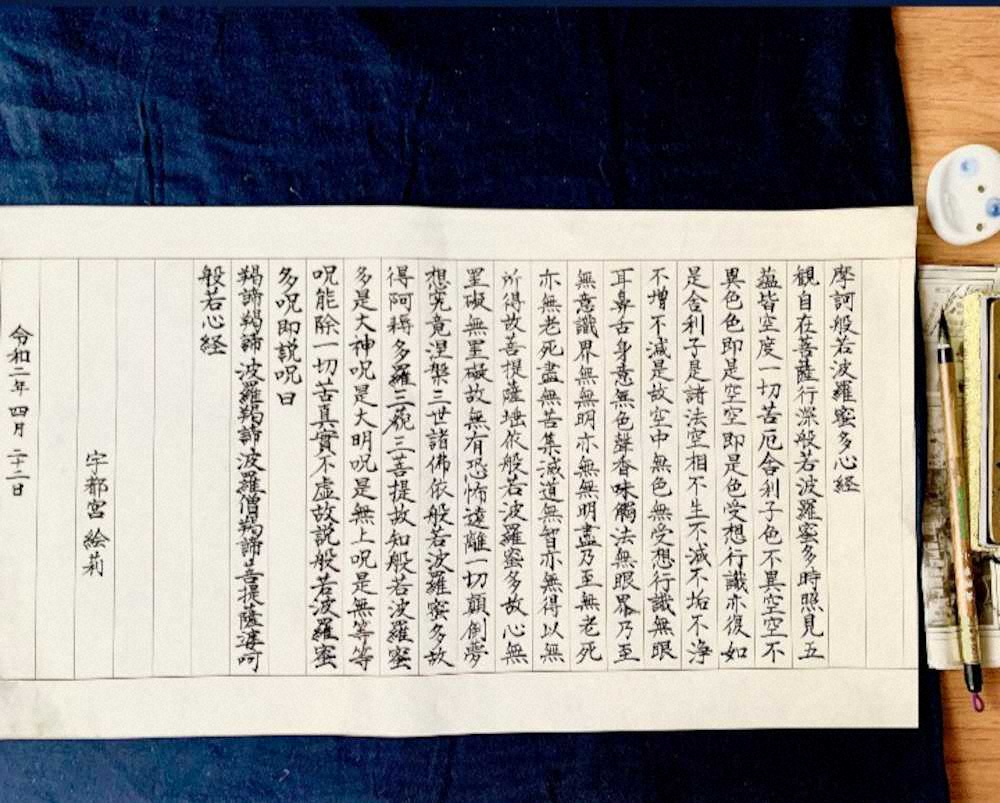 摩訶般若波羅蜜多心経
観自在菩薩行深般若波羅蜜多時照見五
蘊皆空度一切苦厄舎利子色不異空空不
異色色即是空空即是色受想行識亦復如
是舎利子是諸法空相不生不滅不垢不浄
不増不減是故空中無色無受想行識無眼
耳鼻舌身意無色聲香味觸法無眼界乃至
無意識界無無明亦無無明盡乃至無老死
亦無老死盡無苦集滅道無智亦無得以無
所得故菩提薩埵依般若波羅蜜多故心無
罣礙無罣礙故無有恐怖遠離一切顛倒夢
想究竟涅槃三世諸佛依般若波羅蜜多故
得阿耨多羅三藐三菩提故知般若波羅蜜
多是大神呪是大明呪是無上呪是無等等
呪能除一切苦真實不虚故説般若波羅蜜
多呪即説呪曰
羯諦羯諦波羅羯諦波羅僧羯諦菩提薩婆呵
般若心経
宇都宮 絵莉
令和二年 四月 二十二日